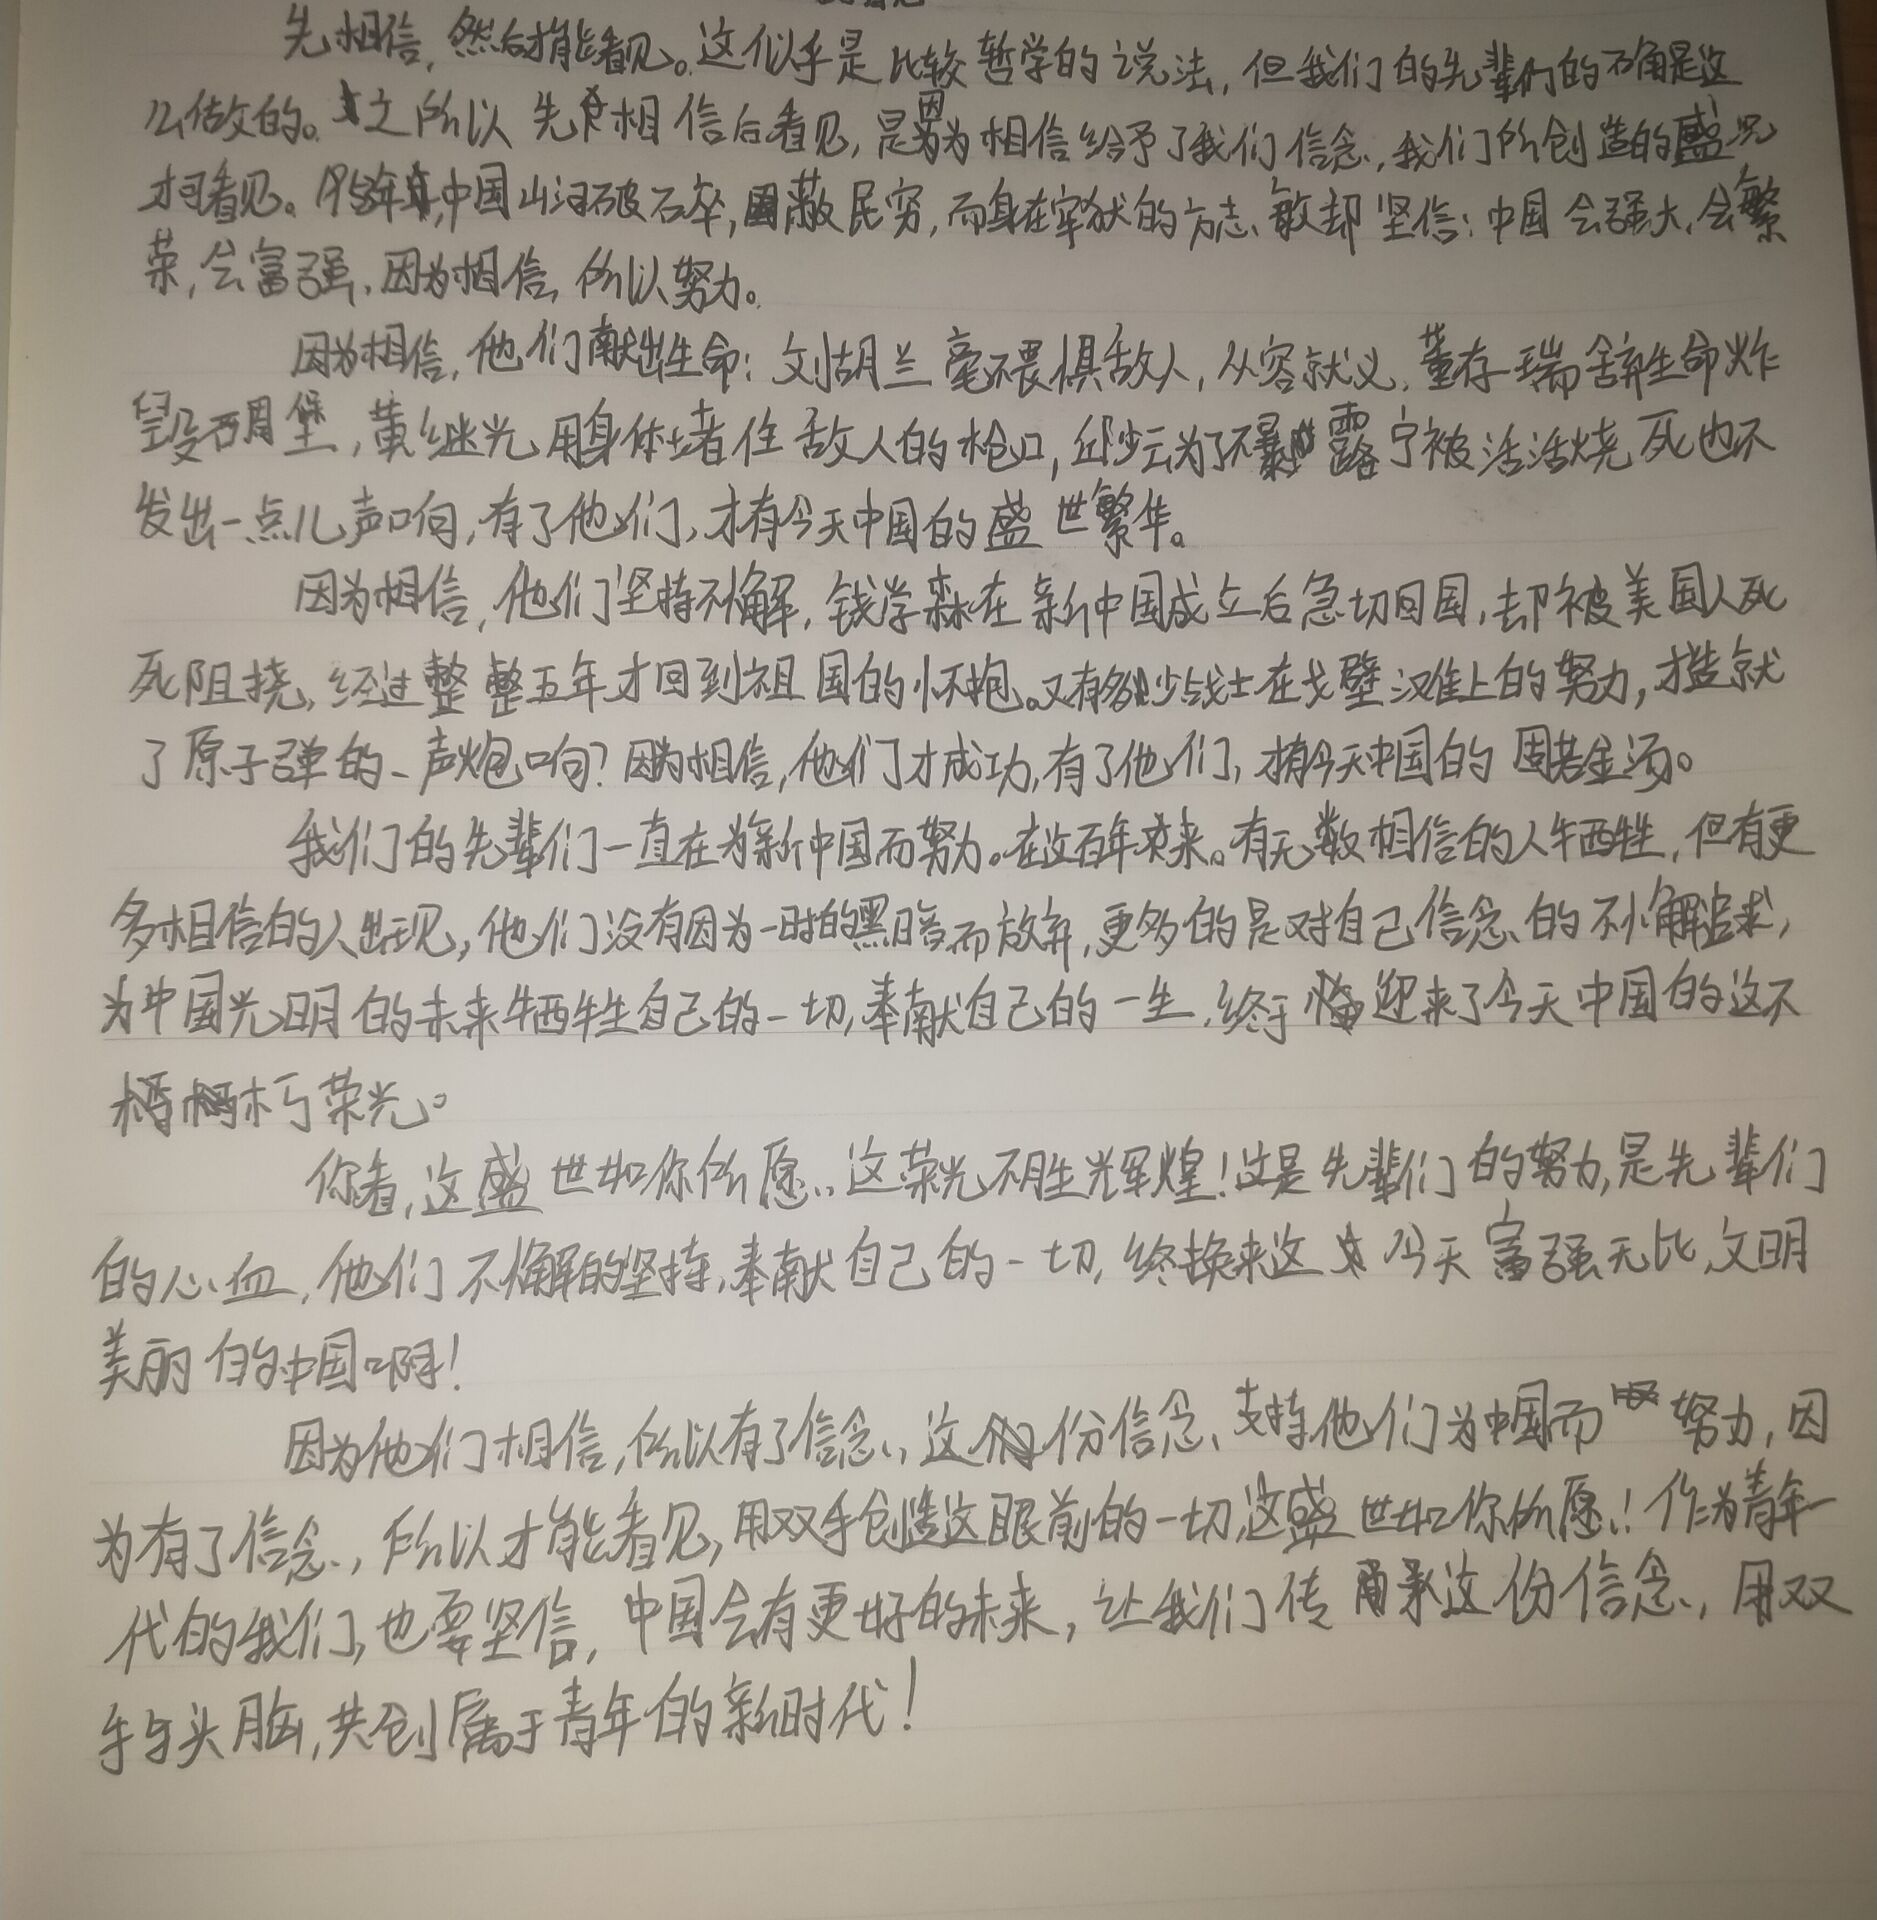 先相信,然后才能看见。这似乎是比较哲学的说法,但我们的先辈们的确是这
么做的。之所以先相信后看见,是因为相信给予了我们信念,我们所创造的盛况
才可看见。中国山河破碎,国敝民穷,而身在牢狱的方志敏却坚信:中国会强大,会繁
荣,会富强,因为相信,所以努力。
因为相信,他们献出生命:刘胡兰毫不畏惧敌人,从容就义,董存瑞舍弃生命炸
毁碉堡,黄继光用身体堵住敌人的枪口,邱少云为了不暴露宁被活活烧死也不
发出一点儿声响,有了他们,才有今天中国的盛世繁华。
因为相信,他们坚持不懈,钱学森在新中国成立后急切回国,却被美国人死
死阻挠,经过整整五年才回到祖国的怀抱。又有多少战士在戈壁滩上的努力,才造就
了原子弹的一声炮响?因为相信,他们才成功,有了他们,才有今天中国的固若金汤。
我们的先辈们一直在为新中国而努力。在这百年来。有无数相信的人牺牲,但有更
多相信的人出现,他们没有因为一时的黑暗而放弃,更多的是对自己信念的不懈追求,
为中国光明的未来牺牲自己的一切,奉献自己的一生,终于迎来了今天中国的这不
朽荣光。
你看,这盛世如你所愿,这荣光不胜光辉煌!这是先辈们的努力,是先辈们
的心血,他们不懈的坚持,奉献自己的一切,终换来这今天富强无比,文明
美丽的中国啊!
因为他们相信,所以有了信念,这份信念支持他们为中国而努力,因
为有了信念,所以才能看见,用双手创造这眼前的一切,这盛世如你所愿!作为青年一
代的我们,也要坚信,中国会有更好的未来,让我们传承这份信念,用双
手与头脑,共创属于青年的新时代!